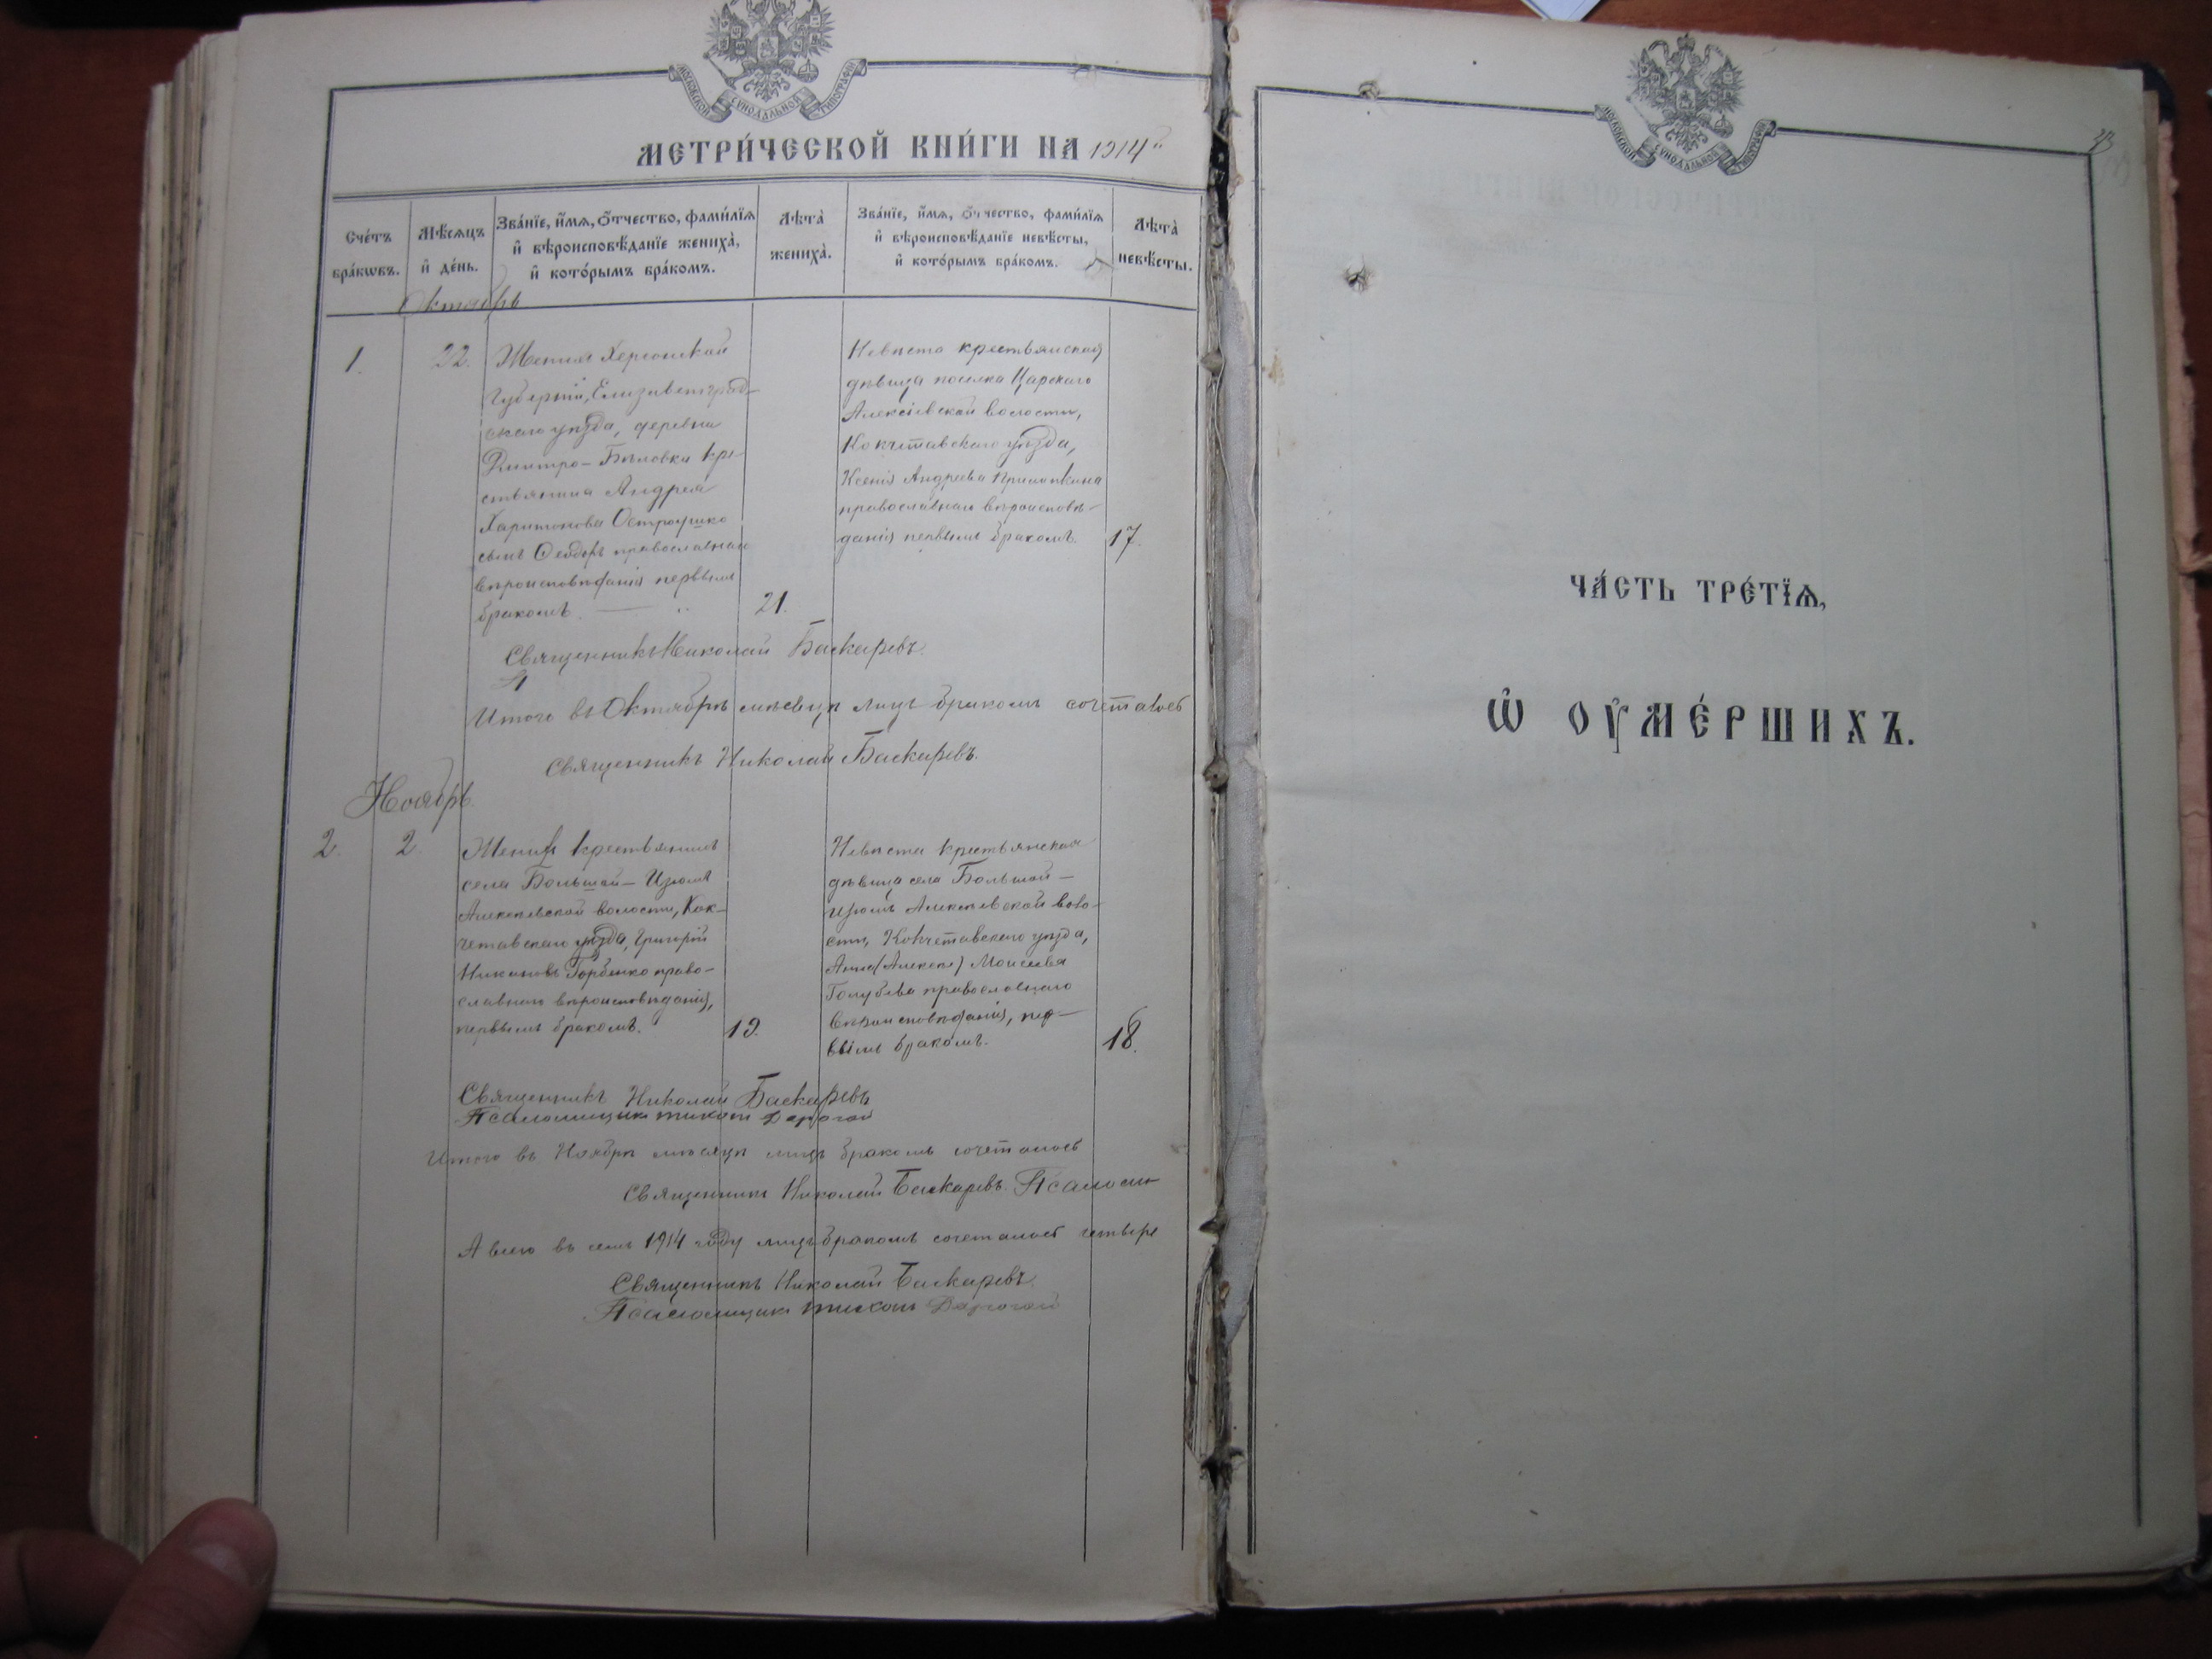 МОСКОВСКОЙ СѴНОДАЛЬНОЙ ТИПОГРАФІИ
МЕТРИ́ЧЕСКОЙ КНИ́ГИ НА 1914
Сче́тъ бра́кѡвъ.
Мѣ́сяцъ и҆ де́нь.
Зва́нїе, и҆́мѧ, ѻ҆́тчество, фами́лїѧ и҆ вѣроисповѣ́данїе жениха̀, и҆ кото́рымъ бра́комъ.
Лѣта̀ жениха̀.
Зва́нїе, и҆́мѧ, ѻ҆́тчество, фами́лїѧ и҆ вѣроисповѣ́данїе невѣ́сты, и҆ кото́рымъ бра́комъ.
Лѣта̀ невѣ́сты.
Октябрь
1.
22.
Женихъ Херсонской
Губерніи, Елизаветград-
скаго уѣзда, деревни
Дмитро-Бѣловки кре-
стьянина Андрея
Харитонова Остроушко
сынъ Ѳеодоръ православнаго
вѣроисповѣданія первымъ
бракомъ.
21.
Невѣста крестьянская
дѣвица поселка Царскаго
Алексіевской волости,
Кокчетавскаго уѣзда,
Ксенія Андреева
православнаго вѣроисповѣ-
данія первымъ бракомъ.
17.
Священникъ Николай Баскаревъ.
Итого въ Октябрѣ мѣсяцѣ лицъ бракомъ сочеталось
Священникъ Николай Баскаревъ.
Ноябрь.
2.
2.
Женихъ крестьянинъ
села Большой-Изюмъ
Алексѣевской волости, Кок-
четавскаго уѣзда, Григорій
Никоновъ Горбенко право-
славнаго вѣроисповѣданія,
первымъ бракомъ.
19.
Невѣста крестьянская
дѣвица села Большой-
Изюмъ Алексѣевской воло-
сти, Кокчетавскаго уѣзда,
Моисеева
Голубева православнаго
вѣроисповѣданія, пер-
вымъ бракомъ.
18.
Священникъ Николай Баскаревъ
Псаломщикъ Тихонъ Дорогой
Итого въ Ноябрѣ мѣсяцѣ лицъ бракомъ сочеталось
Священникъ Николай Баскаревъ. Псалом
А всего въ семъ 1914 году лицъ бракомъ сочеталось четыре
Священникъ Николай Баскаревъ.
Псаломщикъ Тихонъ Дорогой
МОСКОВСКОЙ СѴНОДАЛЬНОЙ ТИПОГРАФІИ
ЧА́СТЬ ТРЕ́ТЇѦ,
Ѡ҆ ОУ҆МЕ́РШИХЪ.